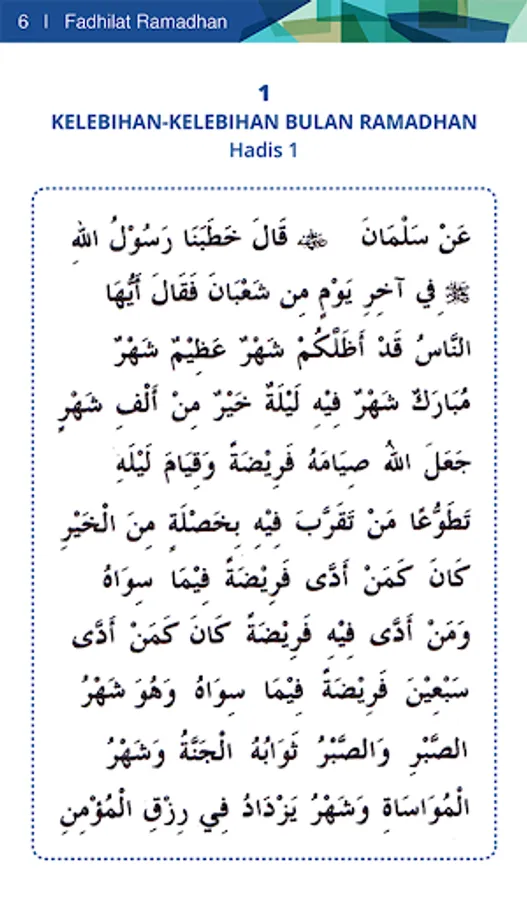 6 | Fadhilat Ramadhan
1
KELEBIHAN-KELEBIHAN BULAN RAMADHAN
Hadis 1
عَنْ سَلْمَانَ ؓ قَالَ خَطَبَنَا رَسُوْلُ اللهِ
ﷺ فِي آخِرِ يَوْمٍ مِن شَعْبَانَ فَقَالَ أَيُّهَا
النَّاسُ قَدْ أَظَلَّكُمْ شَهْرٌ عَظِيْمٌ شَهْرٌ
مُبَارَكٌ شَهْرٌ فِيْهِ لَيْلَةٌ خَيْرٌ مِنْ أَلْفِ شَهْرٍ
جَعَلَ اللهُ صِيَامَهُ فَرِيْضَةً وَقِيَامَ لَيْلَهِ
تَطَوُّعًا مَنْ تَقَرَّبَ فِيْهِ بِخَصْلَةٍ مِنَ الْخَيْرِ
كَانَ كَمَنْ أَدَّى فَرِيْضَةً فِيْمَا سِوَاهُ
وَمَنْ أَدَّى فِيْهِ فَرِيْضَةً كَانَ كَمَنْ أَدَّى
سَبْعِيْنَ فَرِيْضَةً فِيْمَا سِوَاهُ وَهُوَ شَهْرُ
الصَّبْرِ وَالصَّبْرُ ثَوَابُهُ الْجَنَّةُ وَشَهْرُ
الْمُوَاسَاةِ وَشَهْرُ يَزْدَادُ فِي رِزْقِ الْمُؤْمِنِ